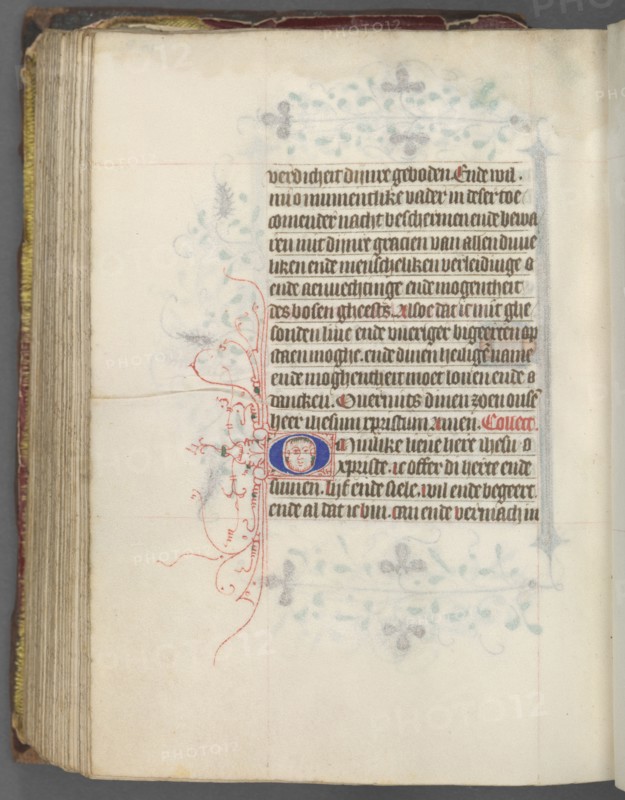 verdicheit dijnre geboden. Ende wil.
mi o minnentlike vader in deser toe
comender nacht beschermen ende bewa
ren mit dijnre gracien van allen
liken ende menscheliken verleidinge
ende aenvechtinge ende mogentheit
des bosen gheests. Alsoe dat ic mit ghe
sonden live ende vueriger begeerten op
staen moghe. ende dinen heiligen name
ende moghentheit moet loven ende
dancken. Overmits dinen zoen onse
heer ihesum xpristum. amen. Collect.
O lieve here ihesu
xpriste. ic offer di herte ende
sinnen. lijf ende siele. wil ende begeerte
ende al dat ic bin. can ende vermach in
PHOTO12